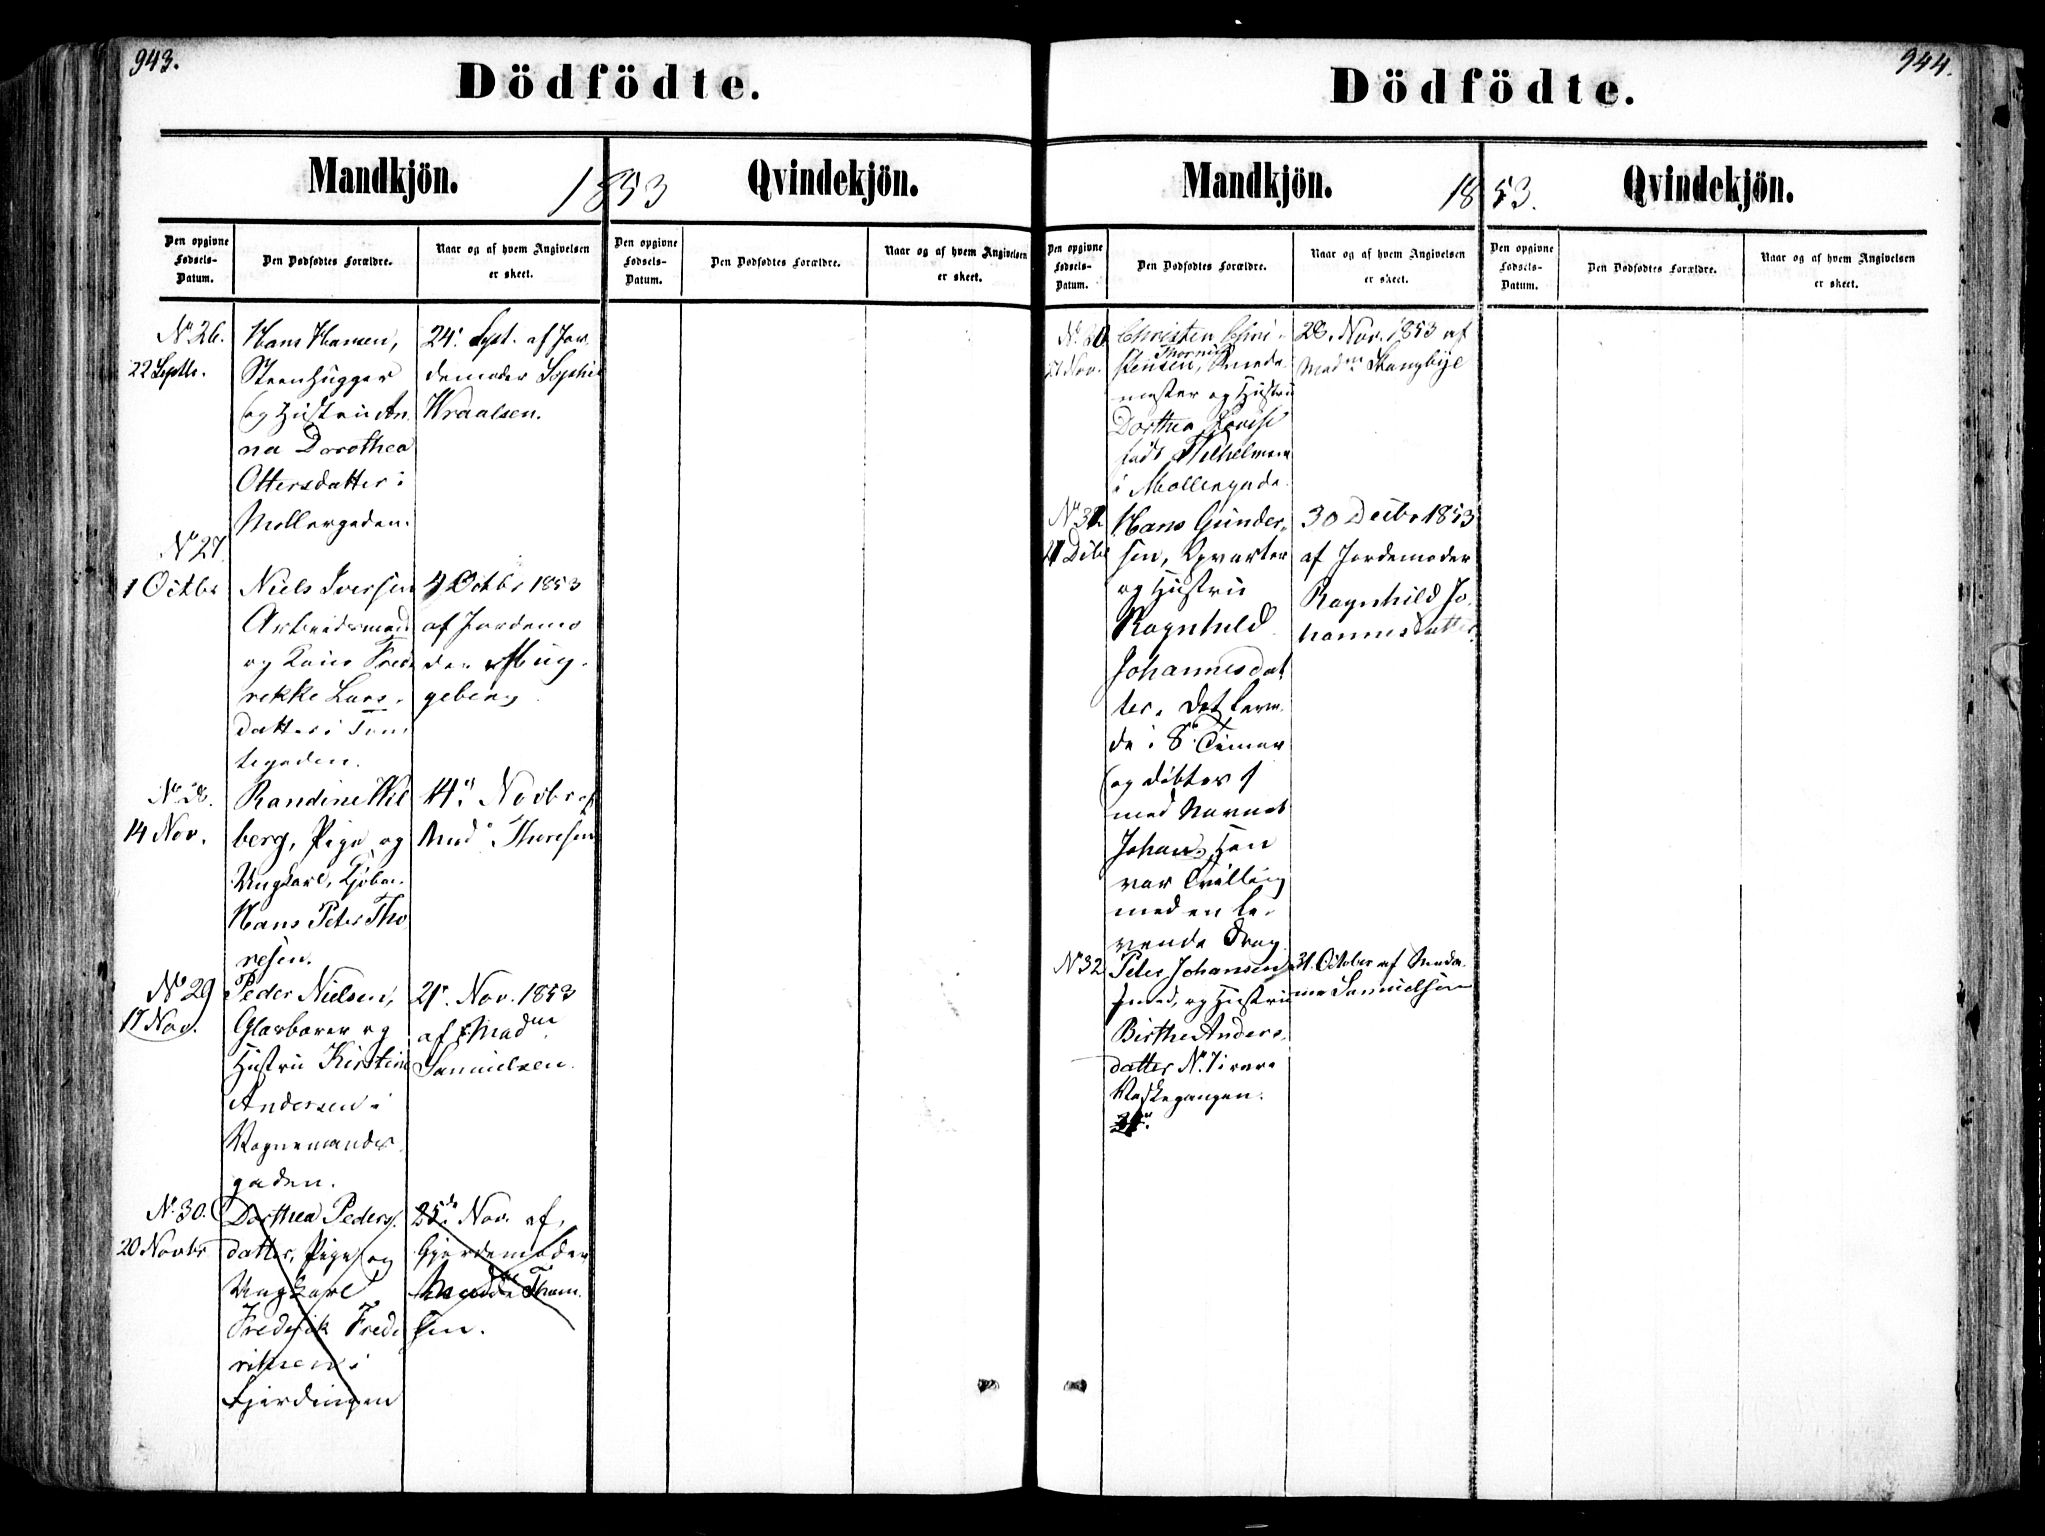 943.
Dödfödte.
Mandkjön.
1853
Qvindekjön.
Den opgivne Fødsels-Datum.
Den Dødfødtes Forældre.
Naar og af hvem Angivelsen er skeet.
Den opgivne Fødsels-Datum.
Den Dødfødtes Forældre.
Naar og af hvem Angivelsen er skeet.
No 26.
22 Septbr.
Hans Hansen,
Steenhugger
og Hustru An
na Dorothea
Ottersdatter i
Møllergaden.
24. Sept. af Jor
demoder Sophie
Kraalsen.
No 27
1 Octbr
Niels Iversen
Arbeidsmand
og Kone Fred
rekke Lars
datter i Tom
tegaden.
4 Octbr 1853
af Jordemo
der Bug
geberg
No 28.
14 Nov.
Randine Wil
berg, Pige og
Ungkarl,
Hans Peter Tho
resen.
14. Novbr af
Mad. Thoresen
No 29
17 Nov.
Peder Nielsen,
Glasbærer og
Hustru Kirstine
Andersen i
Vognmands
gaden.
21. Nov. 1853
af Madme
Samuelsen.
No 30.
20 Novbr
Dorthea Peders
datter, Pige og
Ungkarl
Frederik Fred
riksen i
Fjerdingen
25de Nov. af
Gjordemoder
Thom
sen.
944.
Dödfödte.
Mandkjön.
1853.
Qvindekjön.
Den opgivne Fødsels-Datum.
Den Dødfødtes Forældre.
Naar og af hvem Angivelsen er skeet.
Den opgivne Fødsels-Datum.
Den Dødfødtes Forældre.
Naar og af hvem Angivelsen er skeet.
Nov.
Christen Chri
stensen, Smede
mester og Hustru
Dorthea Lovise
født Wilhelmsen
i Møllergade
28. Nov. 1853 af
Madme Skangbye
No 31.
Decbr
Hans Gunder
sen, Opvarter
og Hustru
Ragnhild
Johannesdat
ter. Det leve
de i 8 Timer
og døbtes
med Navnet
Johan. Han
var Tvilling
med en le
vende Dreng
30 Decbr 1853
af Jordemoder
Ragnhild Jo
hannesdatter.
No 32
Peter Johansen
Smed, og Hustru
Birthe Anders
datter No 7 i
Vaskegangen.
31. October af Mada
me Samuelsen